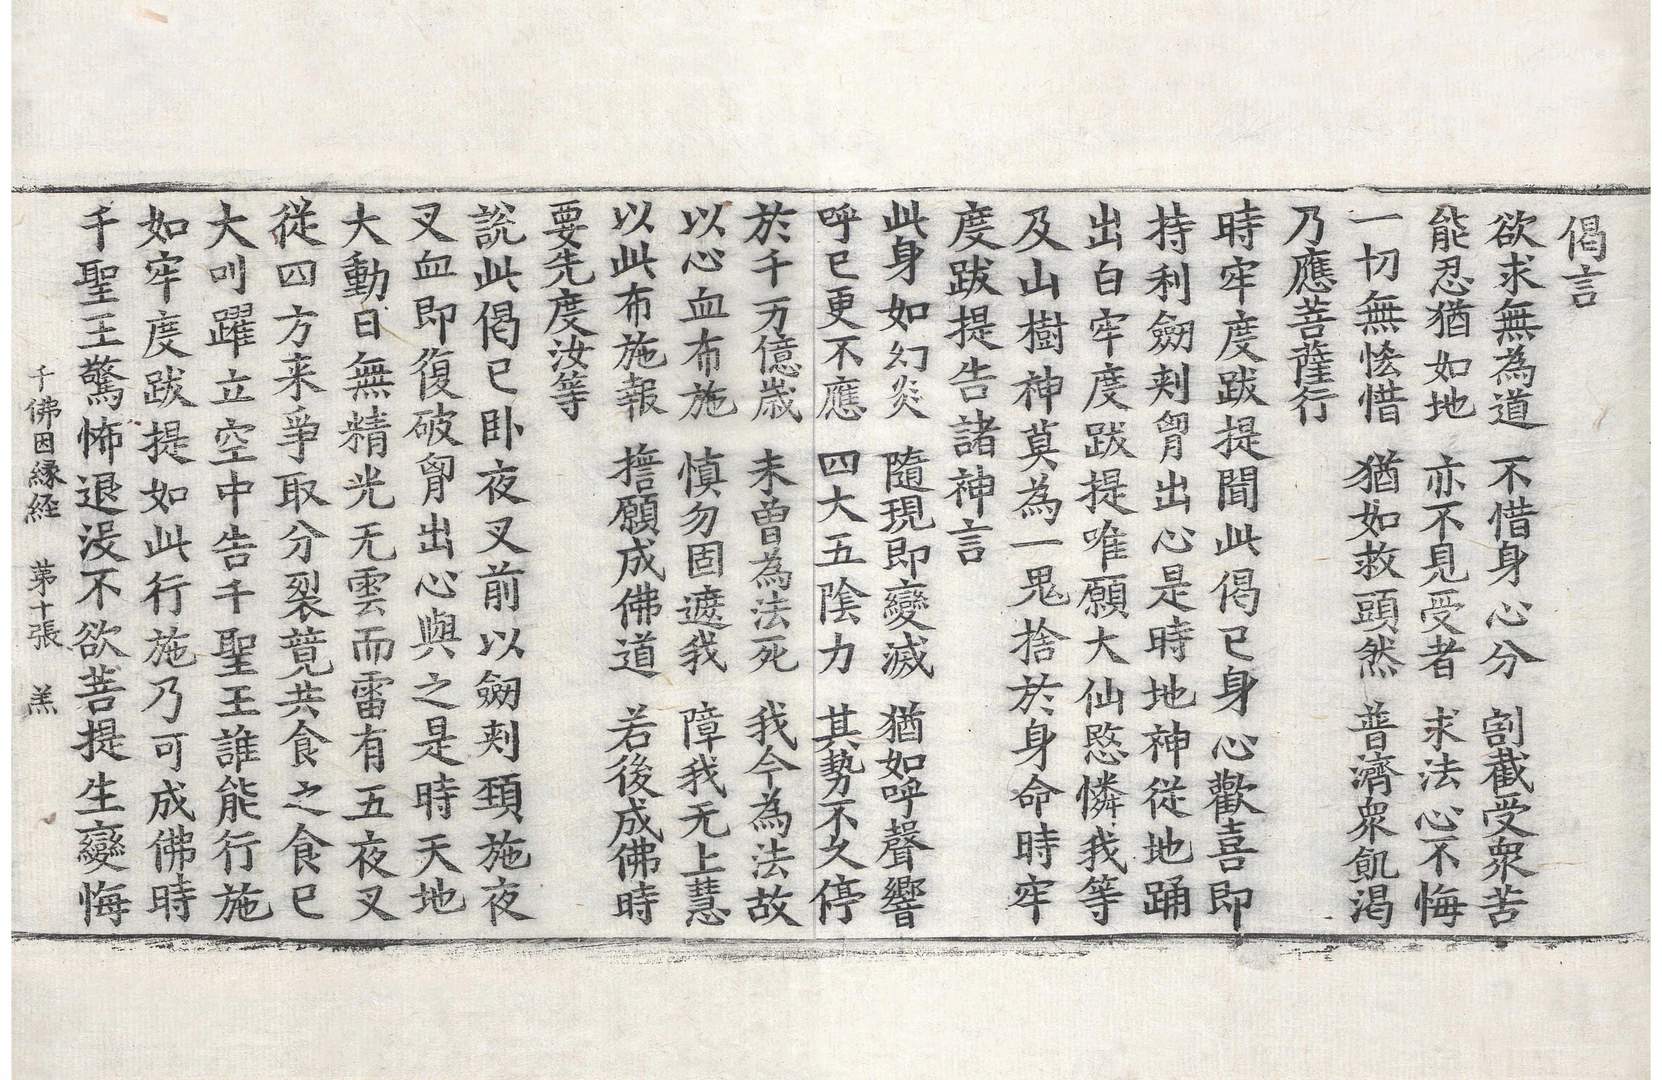 偈言
欲求無為道　不惜身心分　割截受衆苦
能忍猶如地　亦不見受者　求法心不悔
一切無恡惜　猶如救頭然　普濟衆飢渴
乃應菩薩行
時牢度跋提聞此偈已身心歡喜即
持利劒剌胷出心是時地神從地踊
出白牢度跋提唯願大仙愍憐我等
及山樹神莫為一鬼捨於身命時牢
度跋提告諸神言
此身如幻炎　隨現即變滅　猶如呼聲響
呼已更不應　四大五陰力　其勢不久停
於千万億歲　未曾為法死　我今為法故
以心血布施　慎勿固遮我　障我无上慧
以此布施報　擔願成佛道　若後成佛時
要先度汝等
說此偈已卧夜叉前以劒剌頚施夜
叉血即復破胷出心與之是時天地
大動日無精光无雲而雷有五夜叉
從四方来爭取分裂競共食之食已
大叫躍立空中告千聖王誰能行施
如牢度跋提如此行施乃可成佛時
千聖王驚怖退沒不欲菩提生變悔
千佛因縁経　第十張　羔